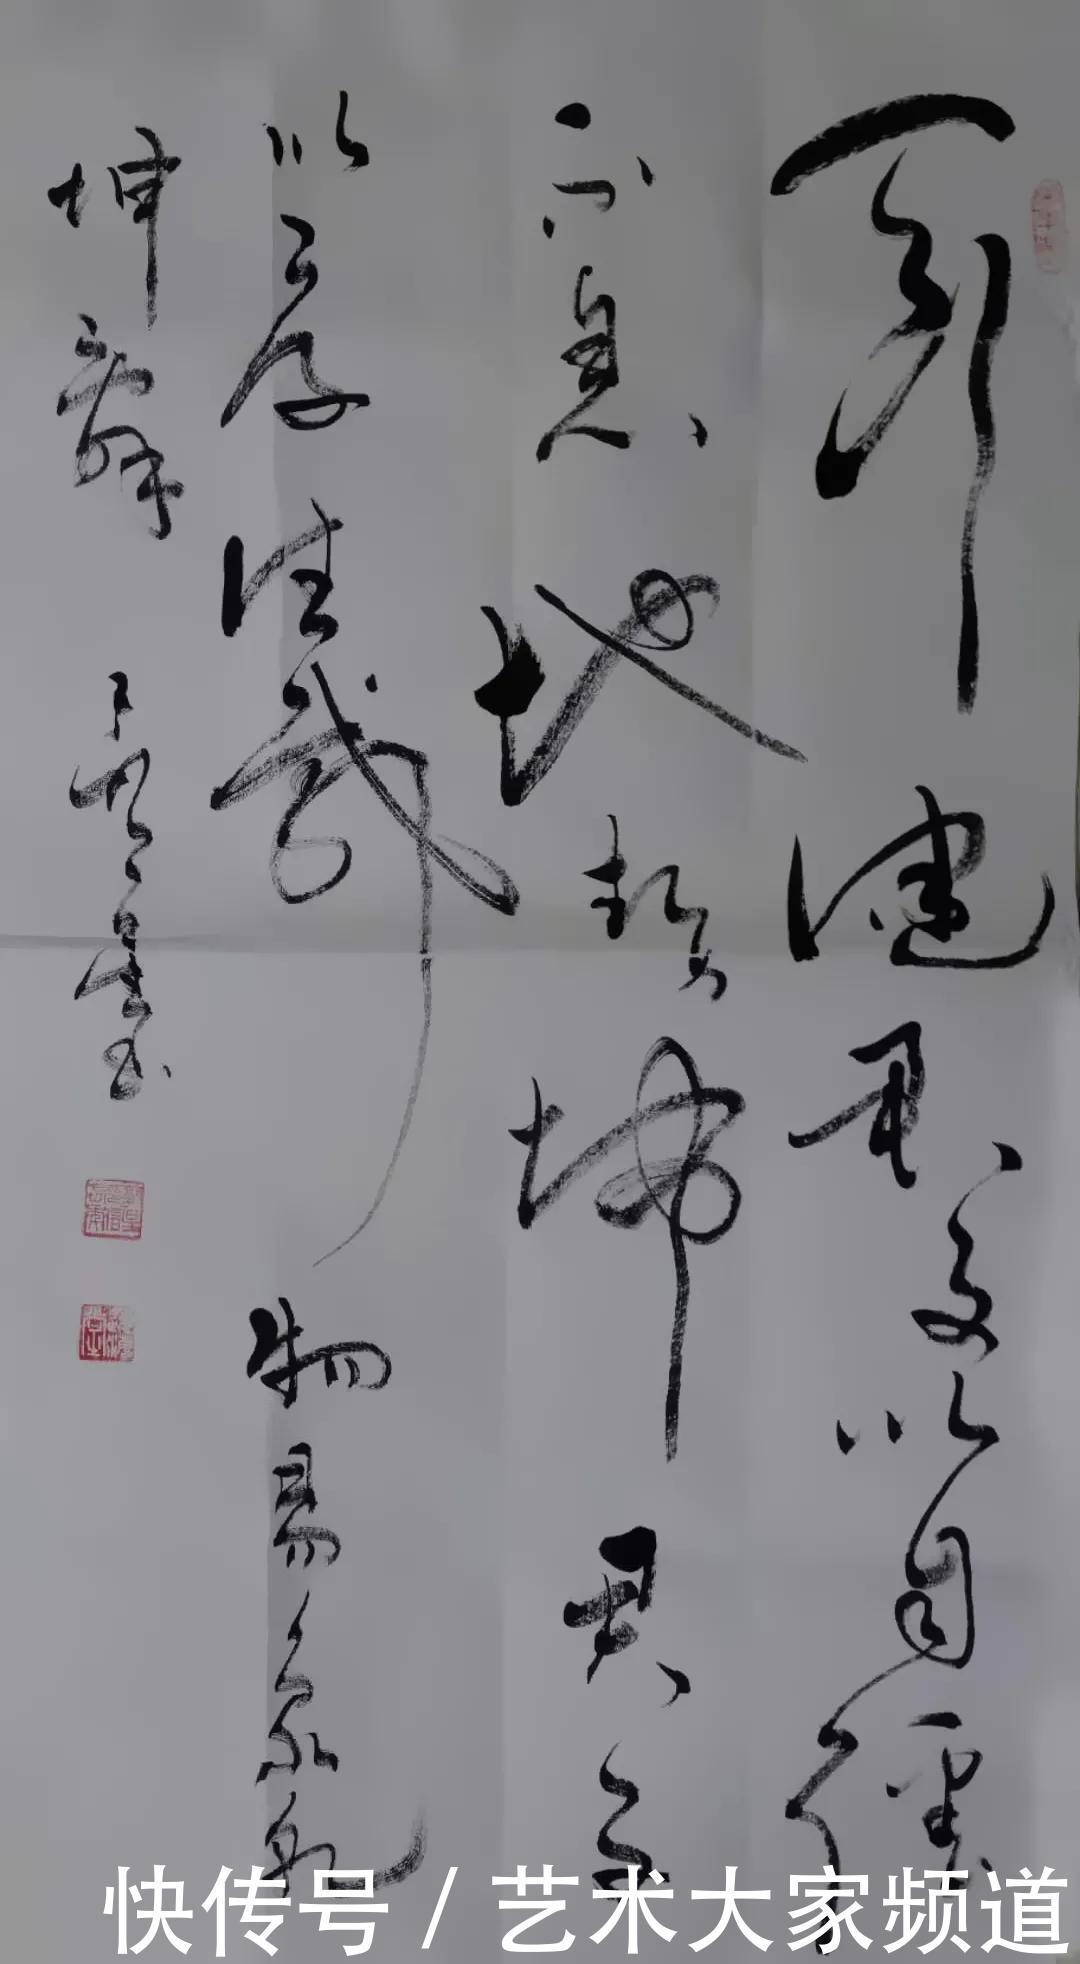 天行健君子以自强
不息地势坤君子
以厚德载物易象乾
坤辞
快传号/艺术大家频道